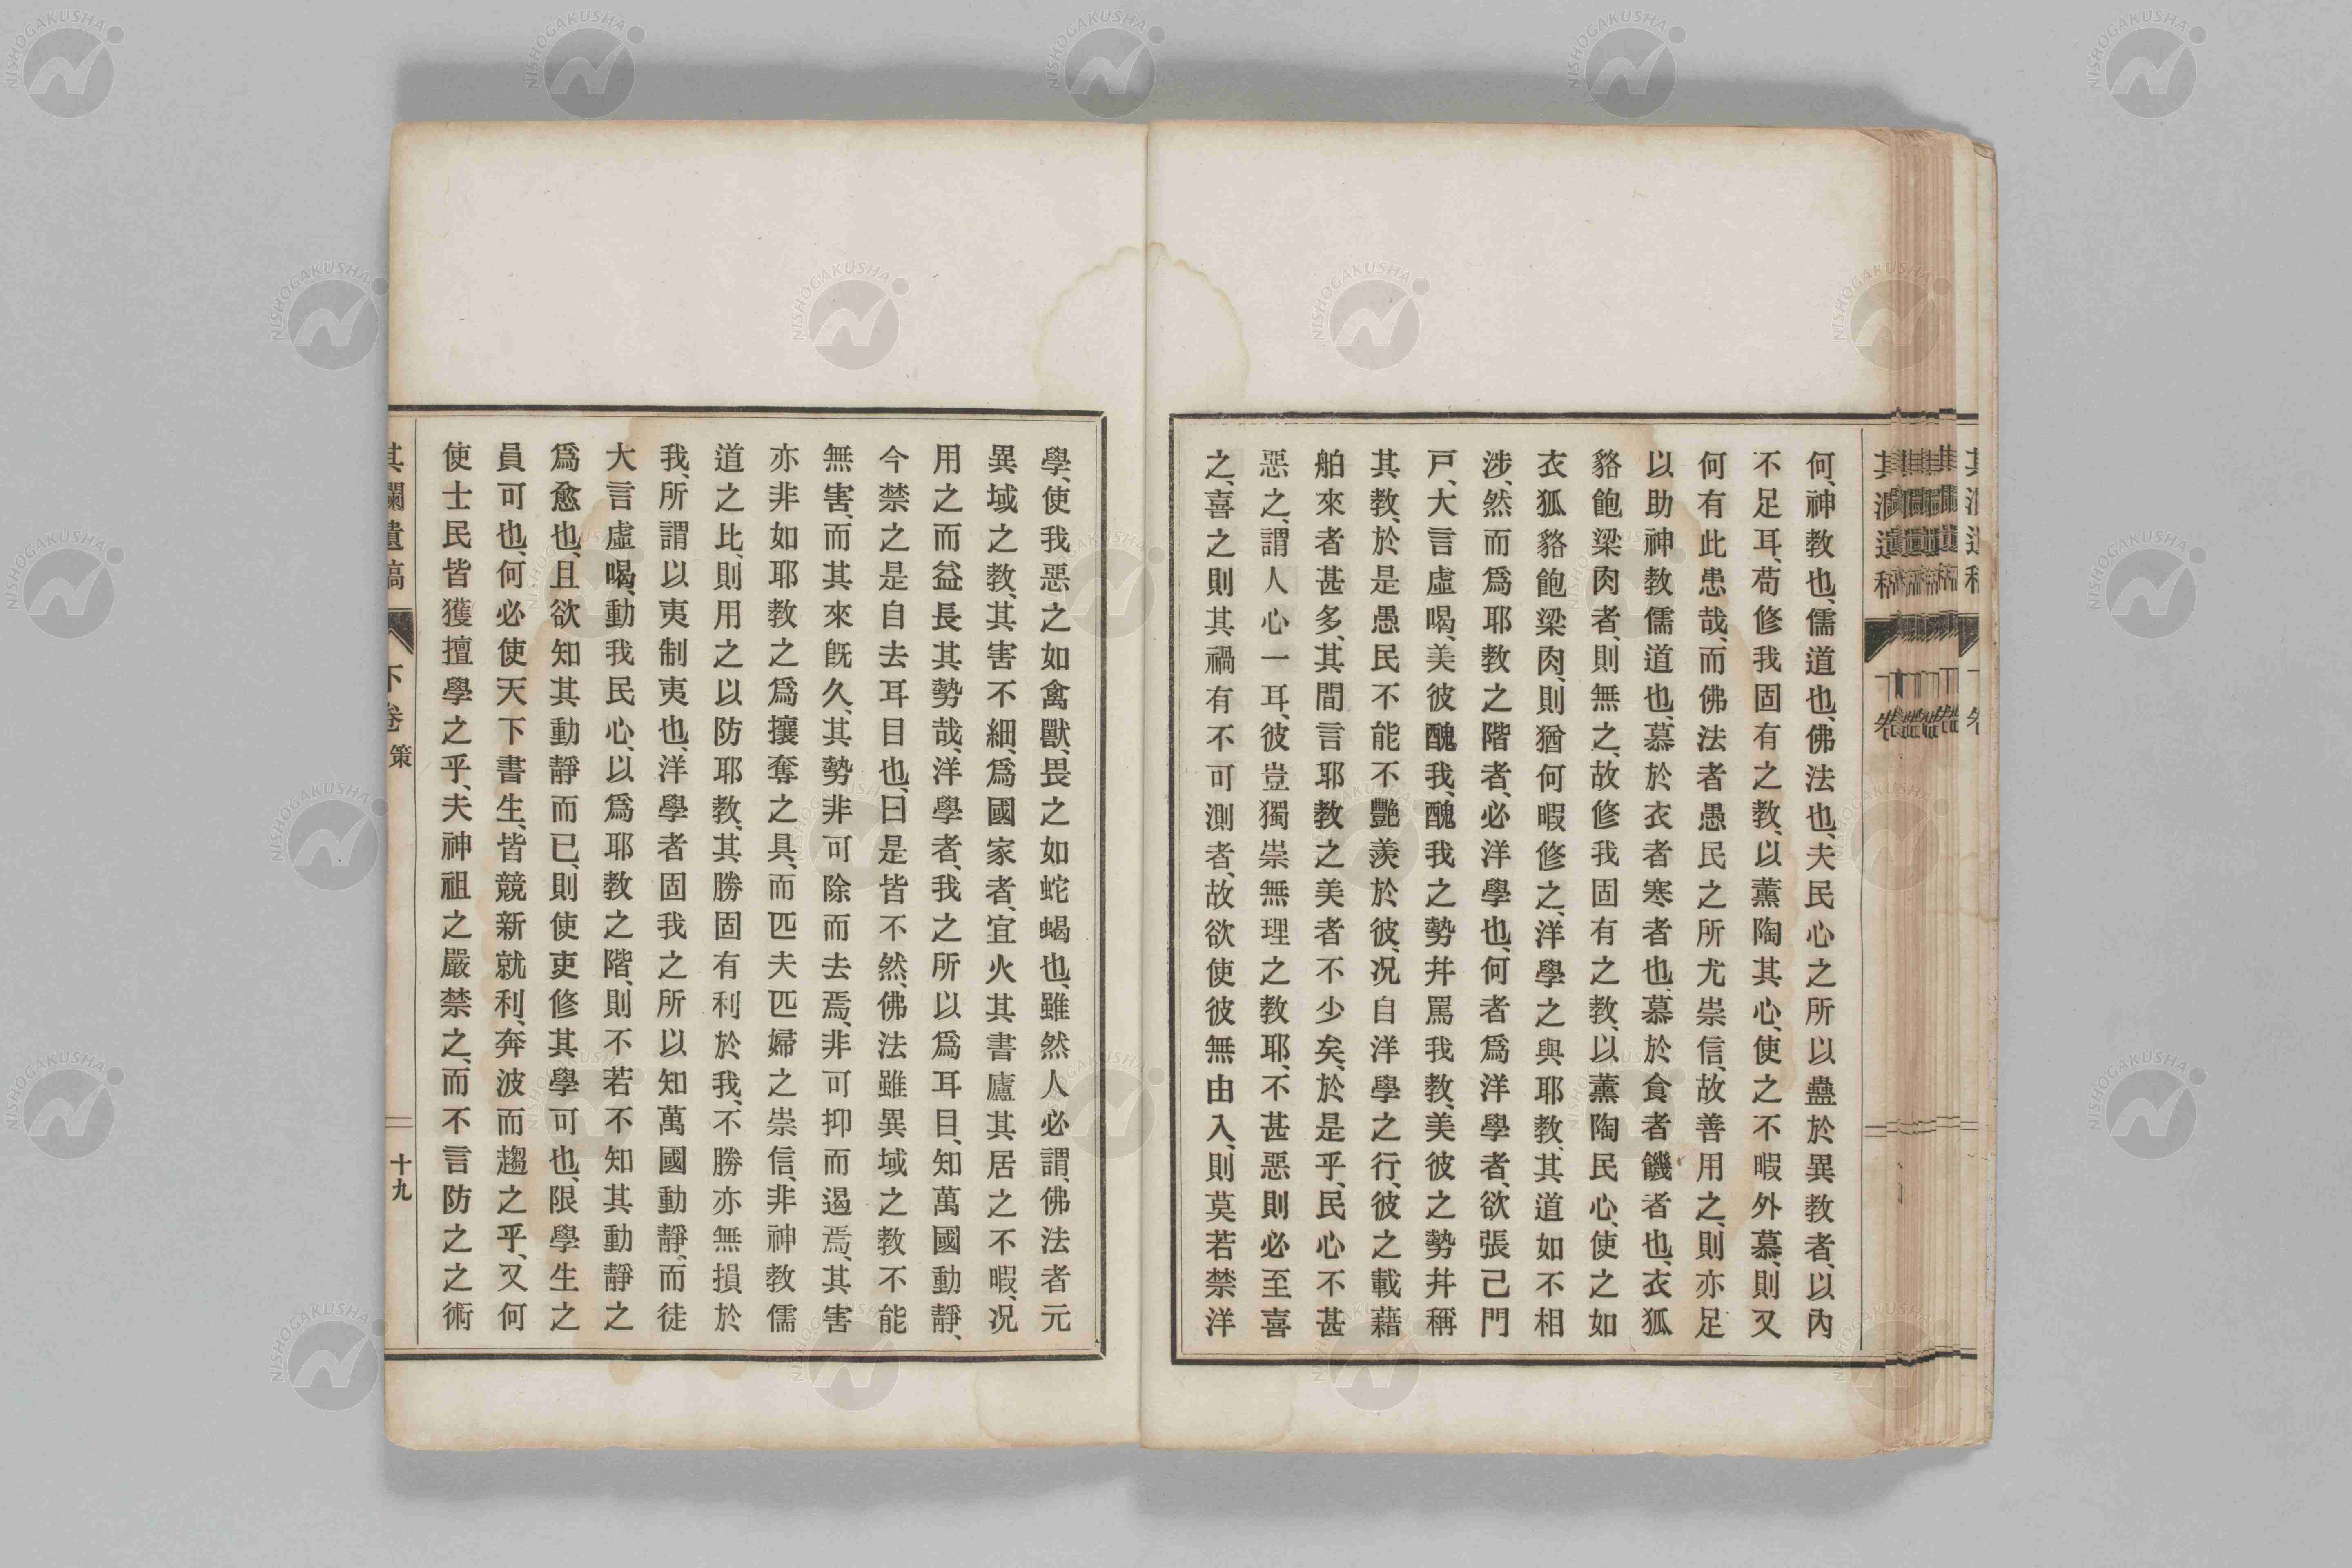 何、神教也、儒道也、佛法也、夫民心之所以蠱於異教者、以內
不足耳、苟修我固有之教、以薰陶其心、使之不暇外慕、則又
何有此患哉、而佛法者愚民之所尤崇信、故善用之、則亦足
以助神教儒道也、慕於衣者寒者也、慕於食者饑者也、衣狐
貉飽梁肉者、則無之、故修我固有之教、以薰陶民心、使之如
衣狐貉飽梁肉、則猶何暇修之、洋學之與耶教、其道如不相
涉、然而爲耶教之階者、必洋學也、何者爲洋學者、欲張己門
戸、大言虛喝、美彼醜我、醜我之勢幷罵我教、美彼之勢幷稱
其教、於是愚民不能不艷羨於彼、况自洋學之行、彼之載藉
舶來者甚多、其間言耶教之美者不少矣、於是乎、民心不甚
惡之、謂人心一耳、彼豈獨崇無理之教耶、不甚惡則必至喜
之、喜之則其禍有不可測者、故欲使彼無由入、則莫若禁洋
學、使我惡之如禽獸、畏之如蛇蝎也、雖然人必謂、佛法者元
異域之教、其害不細、爲國家者、宜火其書廬其居之不暇、况
用之而益長其勢哉、洋學者、我之所以爲耳目、知萬國動靜、
今禁之是自去耳目也、曰是皆不然、佛法雖異域之教不能
無害、而其來旣久、其勢非可除而去焉、非可抑而遏焉、其害
亦非如耶教之爲攘奪之具、而匹夫匹婦之崇信、非神教儒
道之比、則用之以防耶教、其勝固有利於我、不勝亦無損於
我、所謂以夷制夷也、洋學者固我之所以知萬國動靜、而徒
大言虛喝、動我民心、以爲耶教之階、則不若不知其動靜之
爲愈也、且欲知其動靜而已、則使吏修其學可也、限學生之
員可也、何必使天下書生、皆競新就利、奔波而趨之乎、又何
使士民皆獲擅學之乎、夫神祖之嚴禁之、而不言防之之術
其瀾遺稿 下卷 策 十九
NISHOGAKUSHA